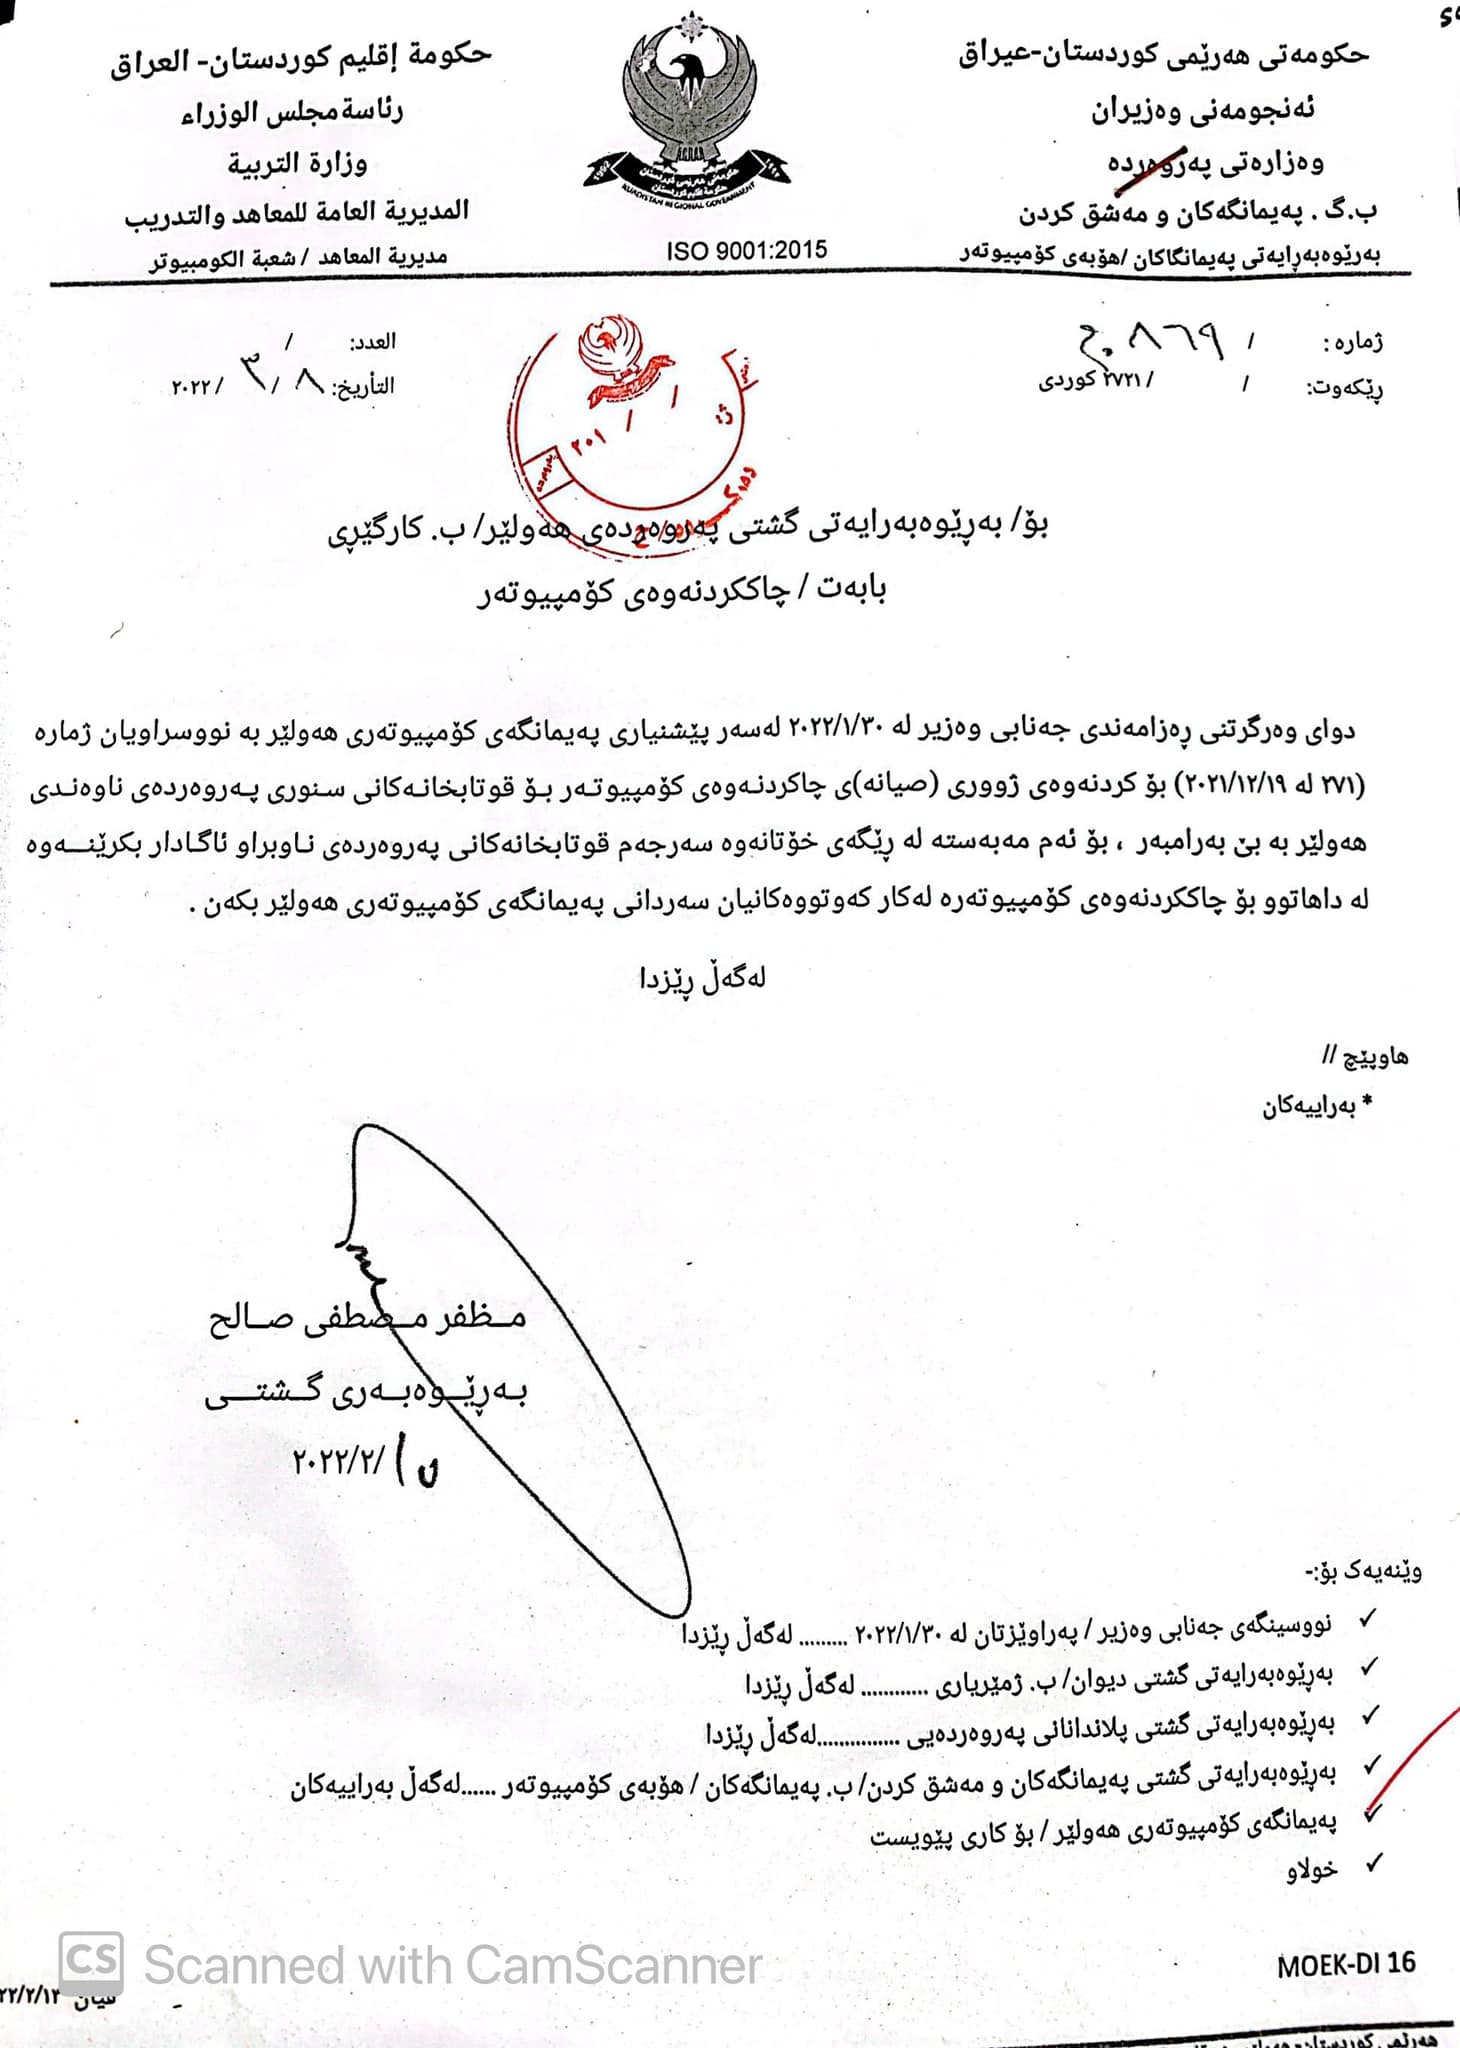 حکومەتی هەرێمی کوردستان-عیراق
ئەنجومەنی وەزیران
وەزارەتی پەروەردە
ب.گ . پەیمانگەکان و مەشق کردن
بەرێوەبەڕایەتی پەیمانگاکان /هۆبەی کۆمپیوتەر
حكومة إقليم كوردستان- العراق
رئاسة مجلس الوزراء
وزارة التربية
المديرية العامة للمعاهد والتدريب
مديرية المعاهد / شعبة الكومبيوتر
1992
حکومەتی هەرێمی کوردستان
KURDISTAN REGIONAL GOVERNMENT
ISO 9001:2015
ژمارە : / ٨٦٩
ڕێکەوت: / / ٢٧٢١ کوردی
العدد: /
التأريخ: ٨ / ٣ / ٢٠٢٢
ژ:
/ / ٢٠١
پەروەردە
بۆ/ بەڕێوەبەرایەتی گشتی پەروەردەی هەولێر/ ب. کارگێڕی
بابەت / چاککردنەوەی کۆمپیوتەر
دوای وەرگرتنی ڕەزامەندی جەنابی وەزیر لە ٢٠٢٢/١/٣٠ لەسەر پێشنیاری پەیمانگەی کۆمپیوتەری هەولێر بە نووسراویان ژمارە
(٢٧١ لە ٢٠٢١/١٢/١٩) بۆ کردنەوەی ژووری (صیانە)ی چاکردنەوەی کۆمپیوتەر بۆ قوتابخانەکانی سنوری پەروەردەی ناوەندی
هەولێر بە بێ بەرامبەر ، بۆ ئەم مەبەستە لە ڕێگەی خۆتانەوە سەرجەم قوتابخانەکانی پەروەردەی ناوبراو ئاگادار بکرێنەوە
لە داهاتوو بۆ چاککردنەوەی کۆمپیوتەرە لەکار کەوتووەکانیان سەردانی پەیمانگەی کۆمپیوتەری هەولێر بکەن .
لەگەڵ ڕێزدا
هاوپێچ //
* بەراییەکان
مظفر مصطفى صالح
بەڕێوەبەری گشتی
٢٠٢٢/٢/١٥
وێنەیەک بۆ:-
✓ نووسینگەی جەنابی وەزیر / پەراوێزتان لە ٢٠٢٢/١/٣٠ ......... لەگەڵ ڕێزدا
✓ بەڕێوەبەرایەتی گشتی دیوان/ ب. ژمێریاری ............ لەگەڵ ڕێزدا
✓ بەڕێوەبەرایەتی گشتی پلاندانانی پەروەردەیی ...............لەگەڵ ڕێزدا
✓ بەڕێوەبەرایەتی گشتی پەیمانگەکان و مەشق کردن/ ب. پەیمانگەکان / هۆبەی کۆمپیوتەر ......لەگەڵ بەراییەکان
✓ پەیمانگەی کۆمپیوتەری هەولێر / بۆ کاری پێویست
✓ خولاو
MOEK-DI 16
CS Scanned with CamScanner
ڤیان ٢٢/٢/١٣